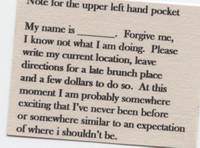 Note for the upper left hand pocket
My name is ______. Forgive me,
I know not what I am doing. Please
write my current location, leave
directions for a late brunch place
and a few dollars to do so. At this
moment I am probably somewhere
exciting that I've never been before
or somewhere similar to an expectation
of where i shouldn't be.